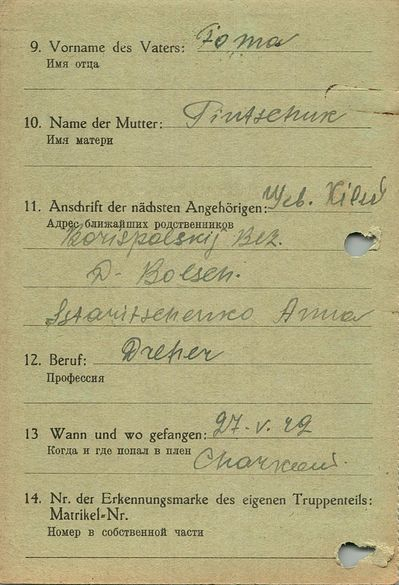 9. Vorname des Vaters: Foma
Имя отца
10. Name der Mutter: Pintschuk
Имя матери
11. Anschrift der nächsten Angehörigen: Geb. Kiew
Адрес ближайших родственников
Borispolskij Bez.
D- Bolsch.
Staritschenko Anna
12. Beruf: Dreher
Профессия
13 Wann und wo gefangen: 27. V. 42
Когда и где попал в плен
Charkow.
14. Nr. der Erkennungsmarke des eigenen Truppenteils:
Matrikel-Nr.
Номер в собственной части